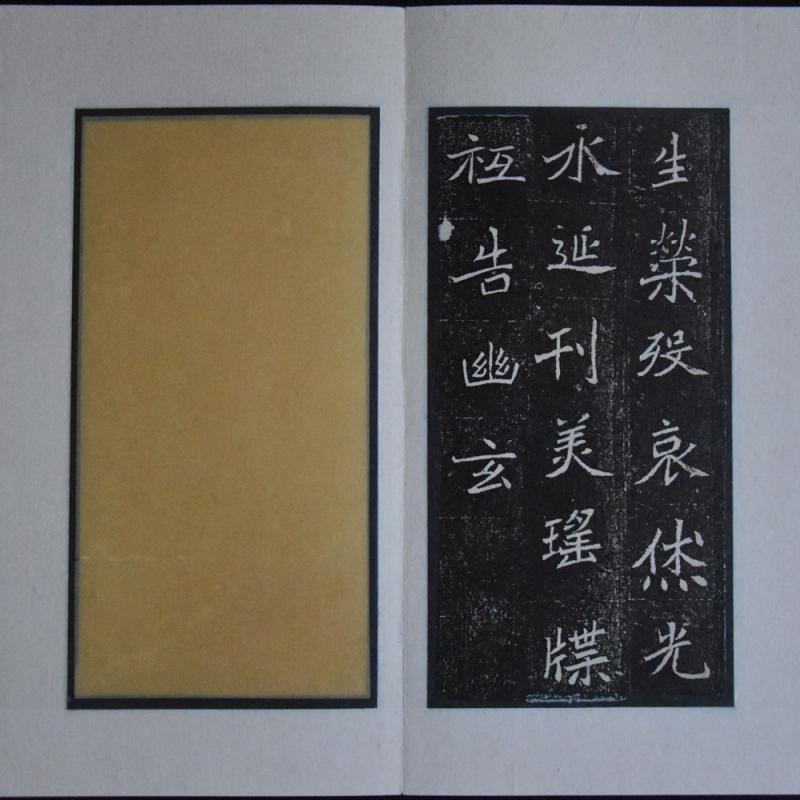 生榮殁哀烋光
永延刊美瑤牒
祗告幽玄